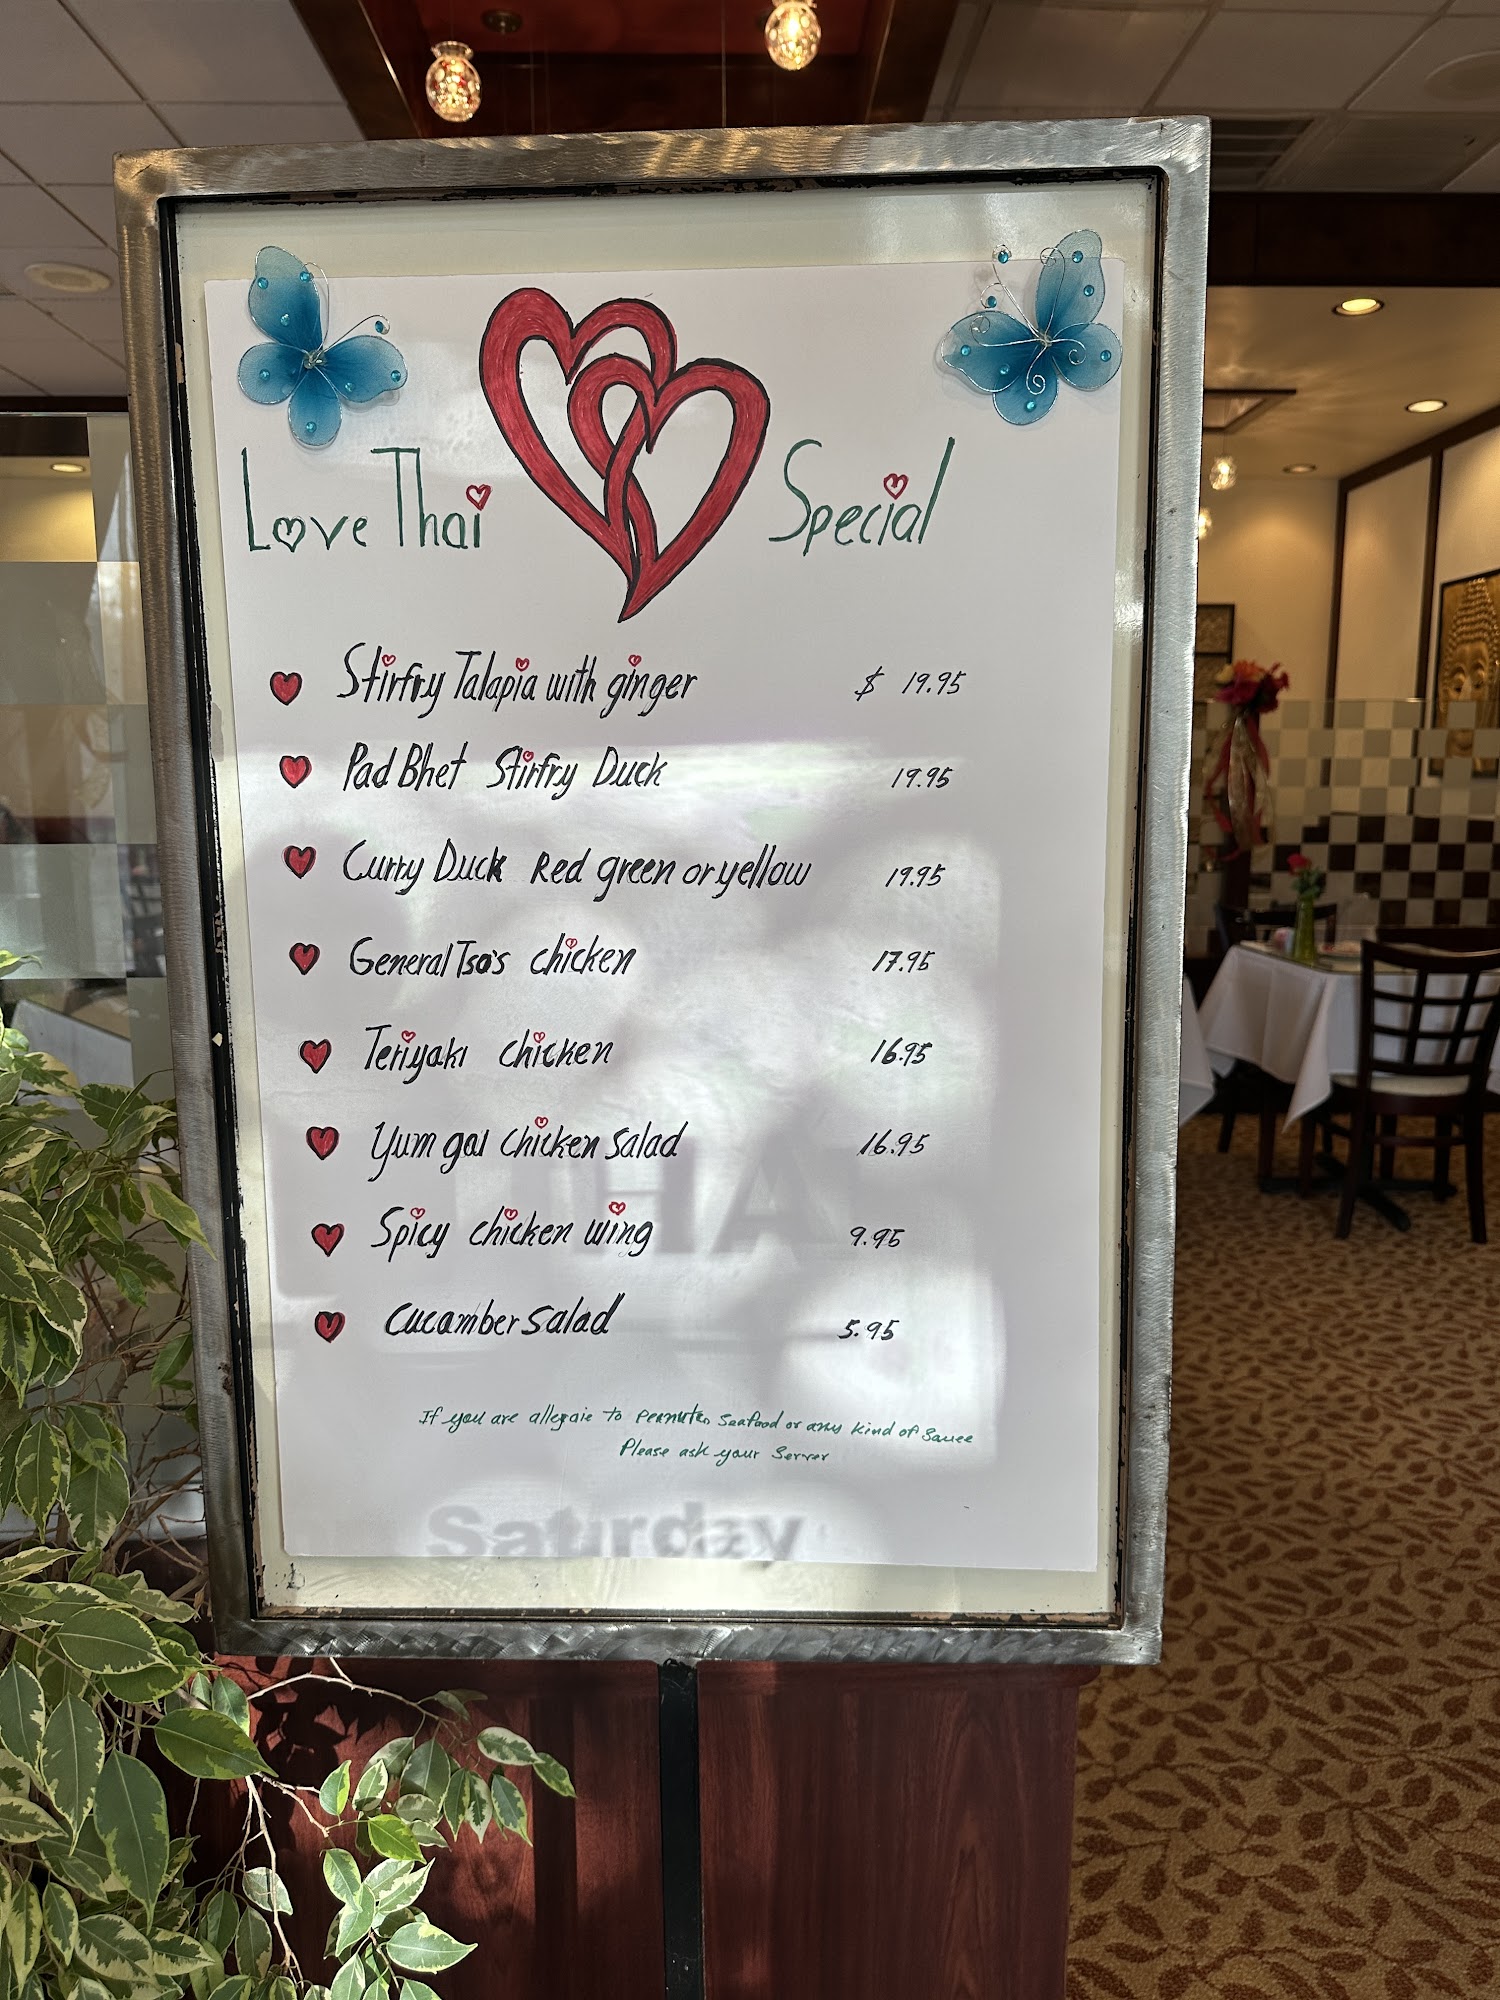 Love Thai Special
Stirfry Talapia with ginger $ 19.95
Pad Bhet Stirfry Duck 19.95
Curry Duck Red green or yellow 19.95
General Tso's chicken 17.95
Teriyaki chicken 16.95
Yum gai chicken salad 16.95
Spicy chicken wing 9.95
Cucamber salad 5.95
If you are allergaie to peanuts, Seafood or any kind of sauce
Please ask your Server
THA
Saturday